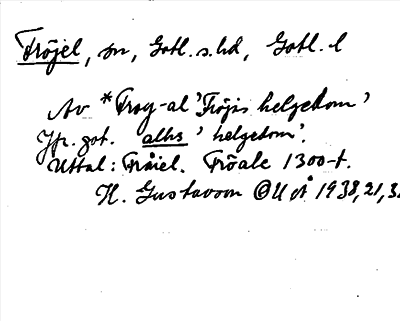 Fröjel, sn, Gotl. s. hd, Gotl. l
Av *Frøy-al 'Fröjis helgedom'
Jfr. got. alhs 'helgedom'.
Uttal: Fråiel. Fröale 1300-t.
H. Gustavson GUÅ 1938, 21, 3